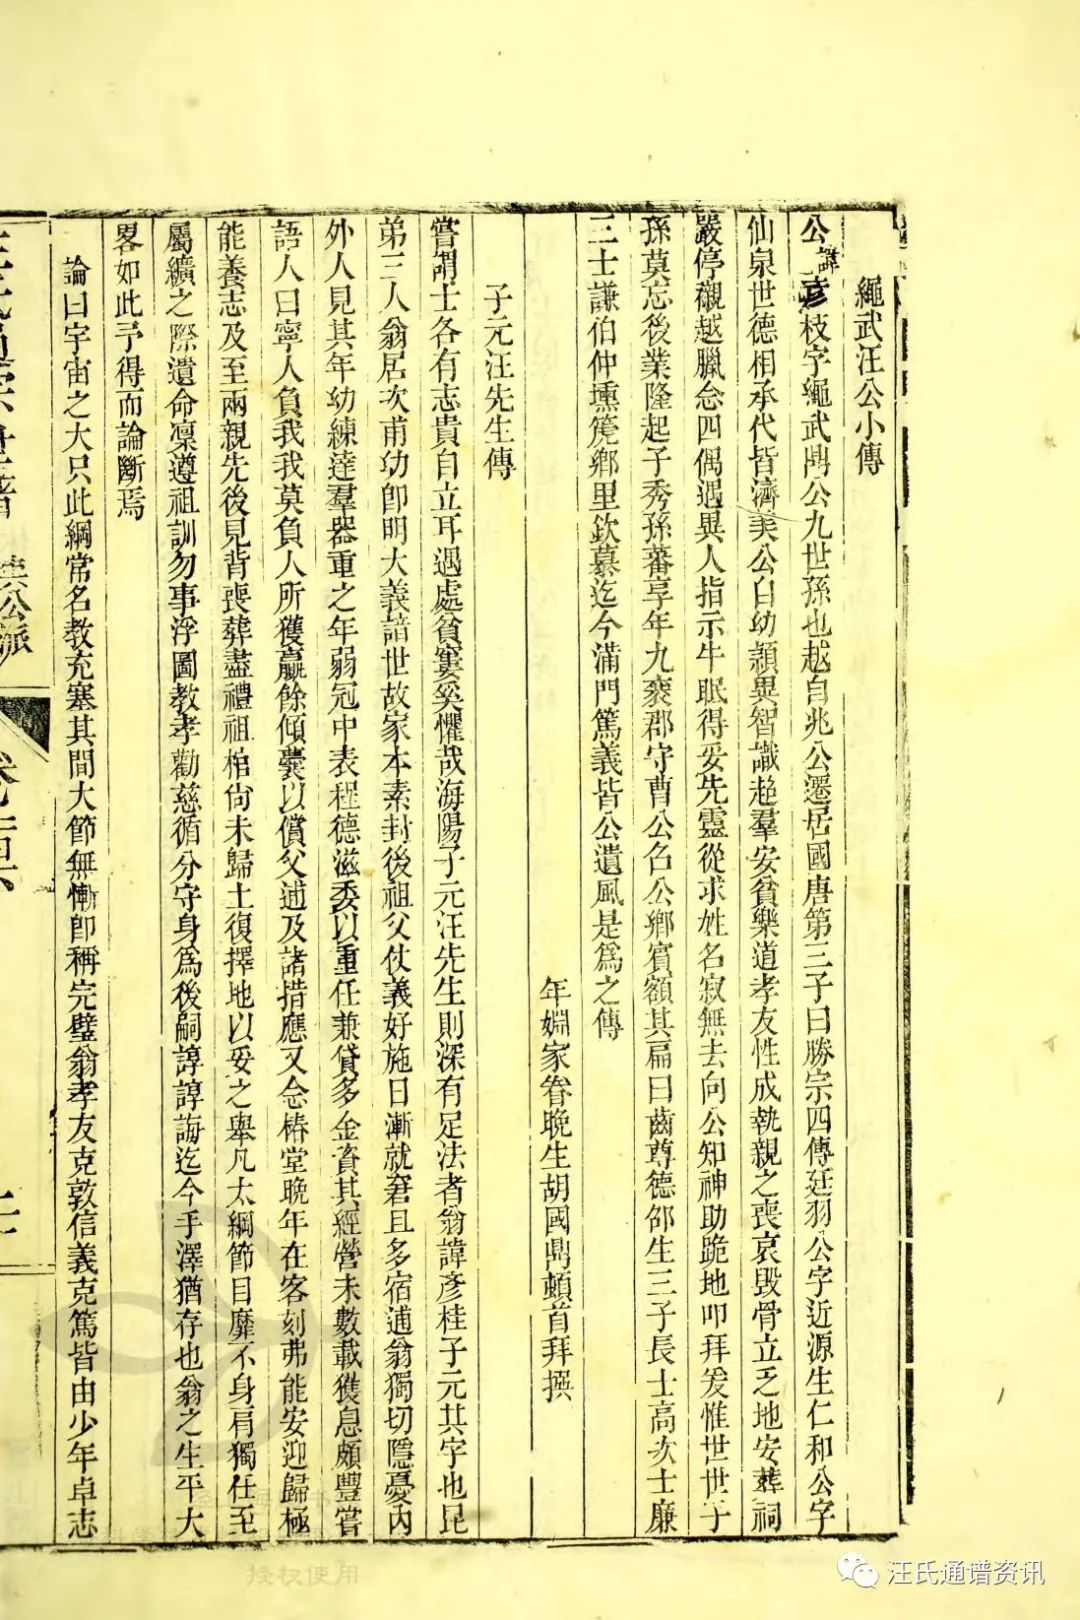 繩武汪公小傳
公諱彥枝字繩武鼎公九世孫也越自兆公遷居國唐第三子曰勝宗四傳廷羽公字近源生仁和公字
仙泉世德相承代皆濟美公自幼穎異智識超羣安貧樂道孝友性成執親之喪哀毀骨立乏地安葬祠
嚴停櫬越臘念四偶遇異人指示牛眠得妥先靈從求姓名寂無去向公知神助跪地叩拜爰惟世世子
孫莫忘後業隆起子秀孫蕃享年九袠郡守曹公名公鄉賓額其扁曰齒尊德邵生三子長士高次士廉
三士謙伯仲壎箎鄉里欽慕迄今滿門篤義皆公遺風是爲之傳
年婣家眷晚生胡國鼎頓首拜撰
子元汪先生傳
嘗謂士各有志貴自立耳遇處貧窶奚懼哉海陽子元汪先生則深有足法者翁諱彥桂子元其字也昆
弟三人翁居次甫幼卽明大義諳世故家本素封後祖父仗義好施日漸就窘且多宿逋翁獨切隱憂內
外人見其年幼練達羣器重之年弱冠中表程德滋委以重任兼貸多金資其經營未數載獲息頗豐嘗
語人曰寧人負我我莫負人所獲贏餘傾囊以償父逋及諸措應又念椿堂晚年在客刻弗能安迎歸極
能養志及至兩親先後見背喪葬盡禮祖棺尙未歸土復擇地以妥之舉凡大綱節目靡不身肩獨任至
屬纊之際遺命凜遵祖訓勿事浮圖教孝勸慈循分守身爲後嗣諄諄誨迄今手澤猶存也翁之生平大
畧如此予得而論斷焉
論曰宇宙之大只此綱常名教充塞其間大節無慚卽稱完璧翁孝友克敦信義克篤皆由少年卓志
汪氏通宗世譜
公派
卷
授权使用
汪氏通谱资讯